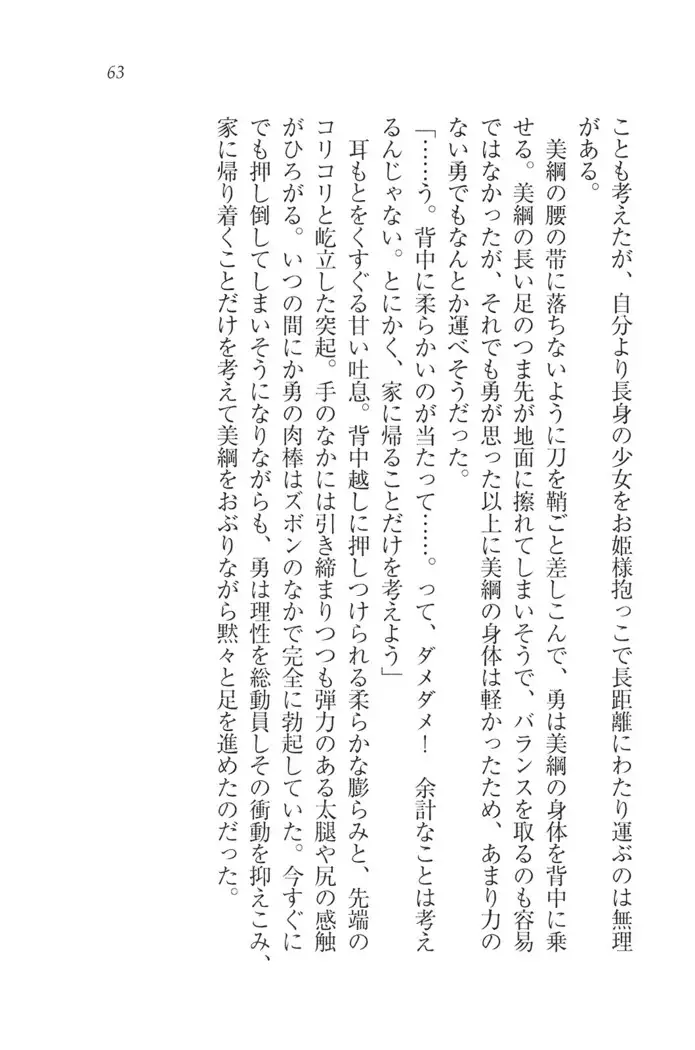 63
ことも考えたが、自分より長身の少女をお姫様抱っこで長距離にわたり運ぶのは無理
がある。
美綱の腰の帯に落ちないように刀を鞘ごと差しこんで、勇は美綱の身体を背中に乗
せる。美綱の長い足のつま先が地面に擦れてしまいそうで、バランスを取るのも容易
ではなかったが、それでも勇が思った以上に美綱の身体は軽かったため、あまり力の
ない勇でもなんとか運べそうだった。
「……う。背中に柔らかいのが当たって……。って、ダメダメ！　余計なことは考え
るんじゃない。とにかく、家に帰ることだけを考えよう」
耳もとをくすぐる甘い吐息。背中越しに押しつけられる柔らかな膨らみと、先端の
コリコリと屹立した突起。手のなかには引き締まりつつも弾力のある太腿や尻の感触
がひろがる。いつの間にか勇の肉棒はズボンのなかで完全に勃起していた。今すぐに
でも押し倒してしまいそうになりながらも、勇は理性を総動員しその衝動を抑えこみ、
家に帰り着くことだけを考えて美綱をおぶりながら黙々と足を進めたのだった。